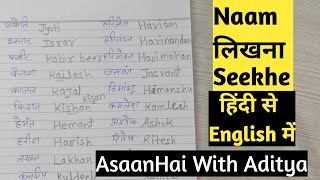 ज्योति Jyoti हरिओम Hariom
इसरार Israr हरिनंदन Harinandan
कबीर Kabir beer हरिमोहन Harimohan
कैलाश Kailash जसवंत Jasvant
काजल Kajal हिमांशु Himanshu
किशन Kishan Kisan कमलेश Kamlesh
हेमंत Hemant अशोक Ashok
हरीश Harish रितेश Ritesh
लखन Lakhan
कुलदीप Kuldeep
Naam
लिखना
Seekhe
हिंदी से
English में
AsaanHai With Aditya